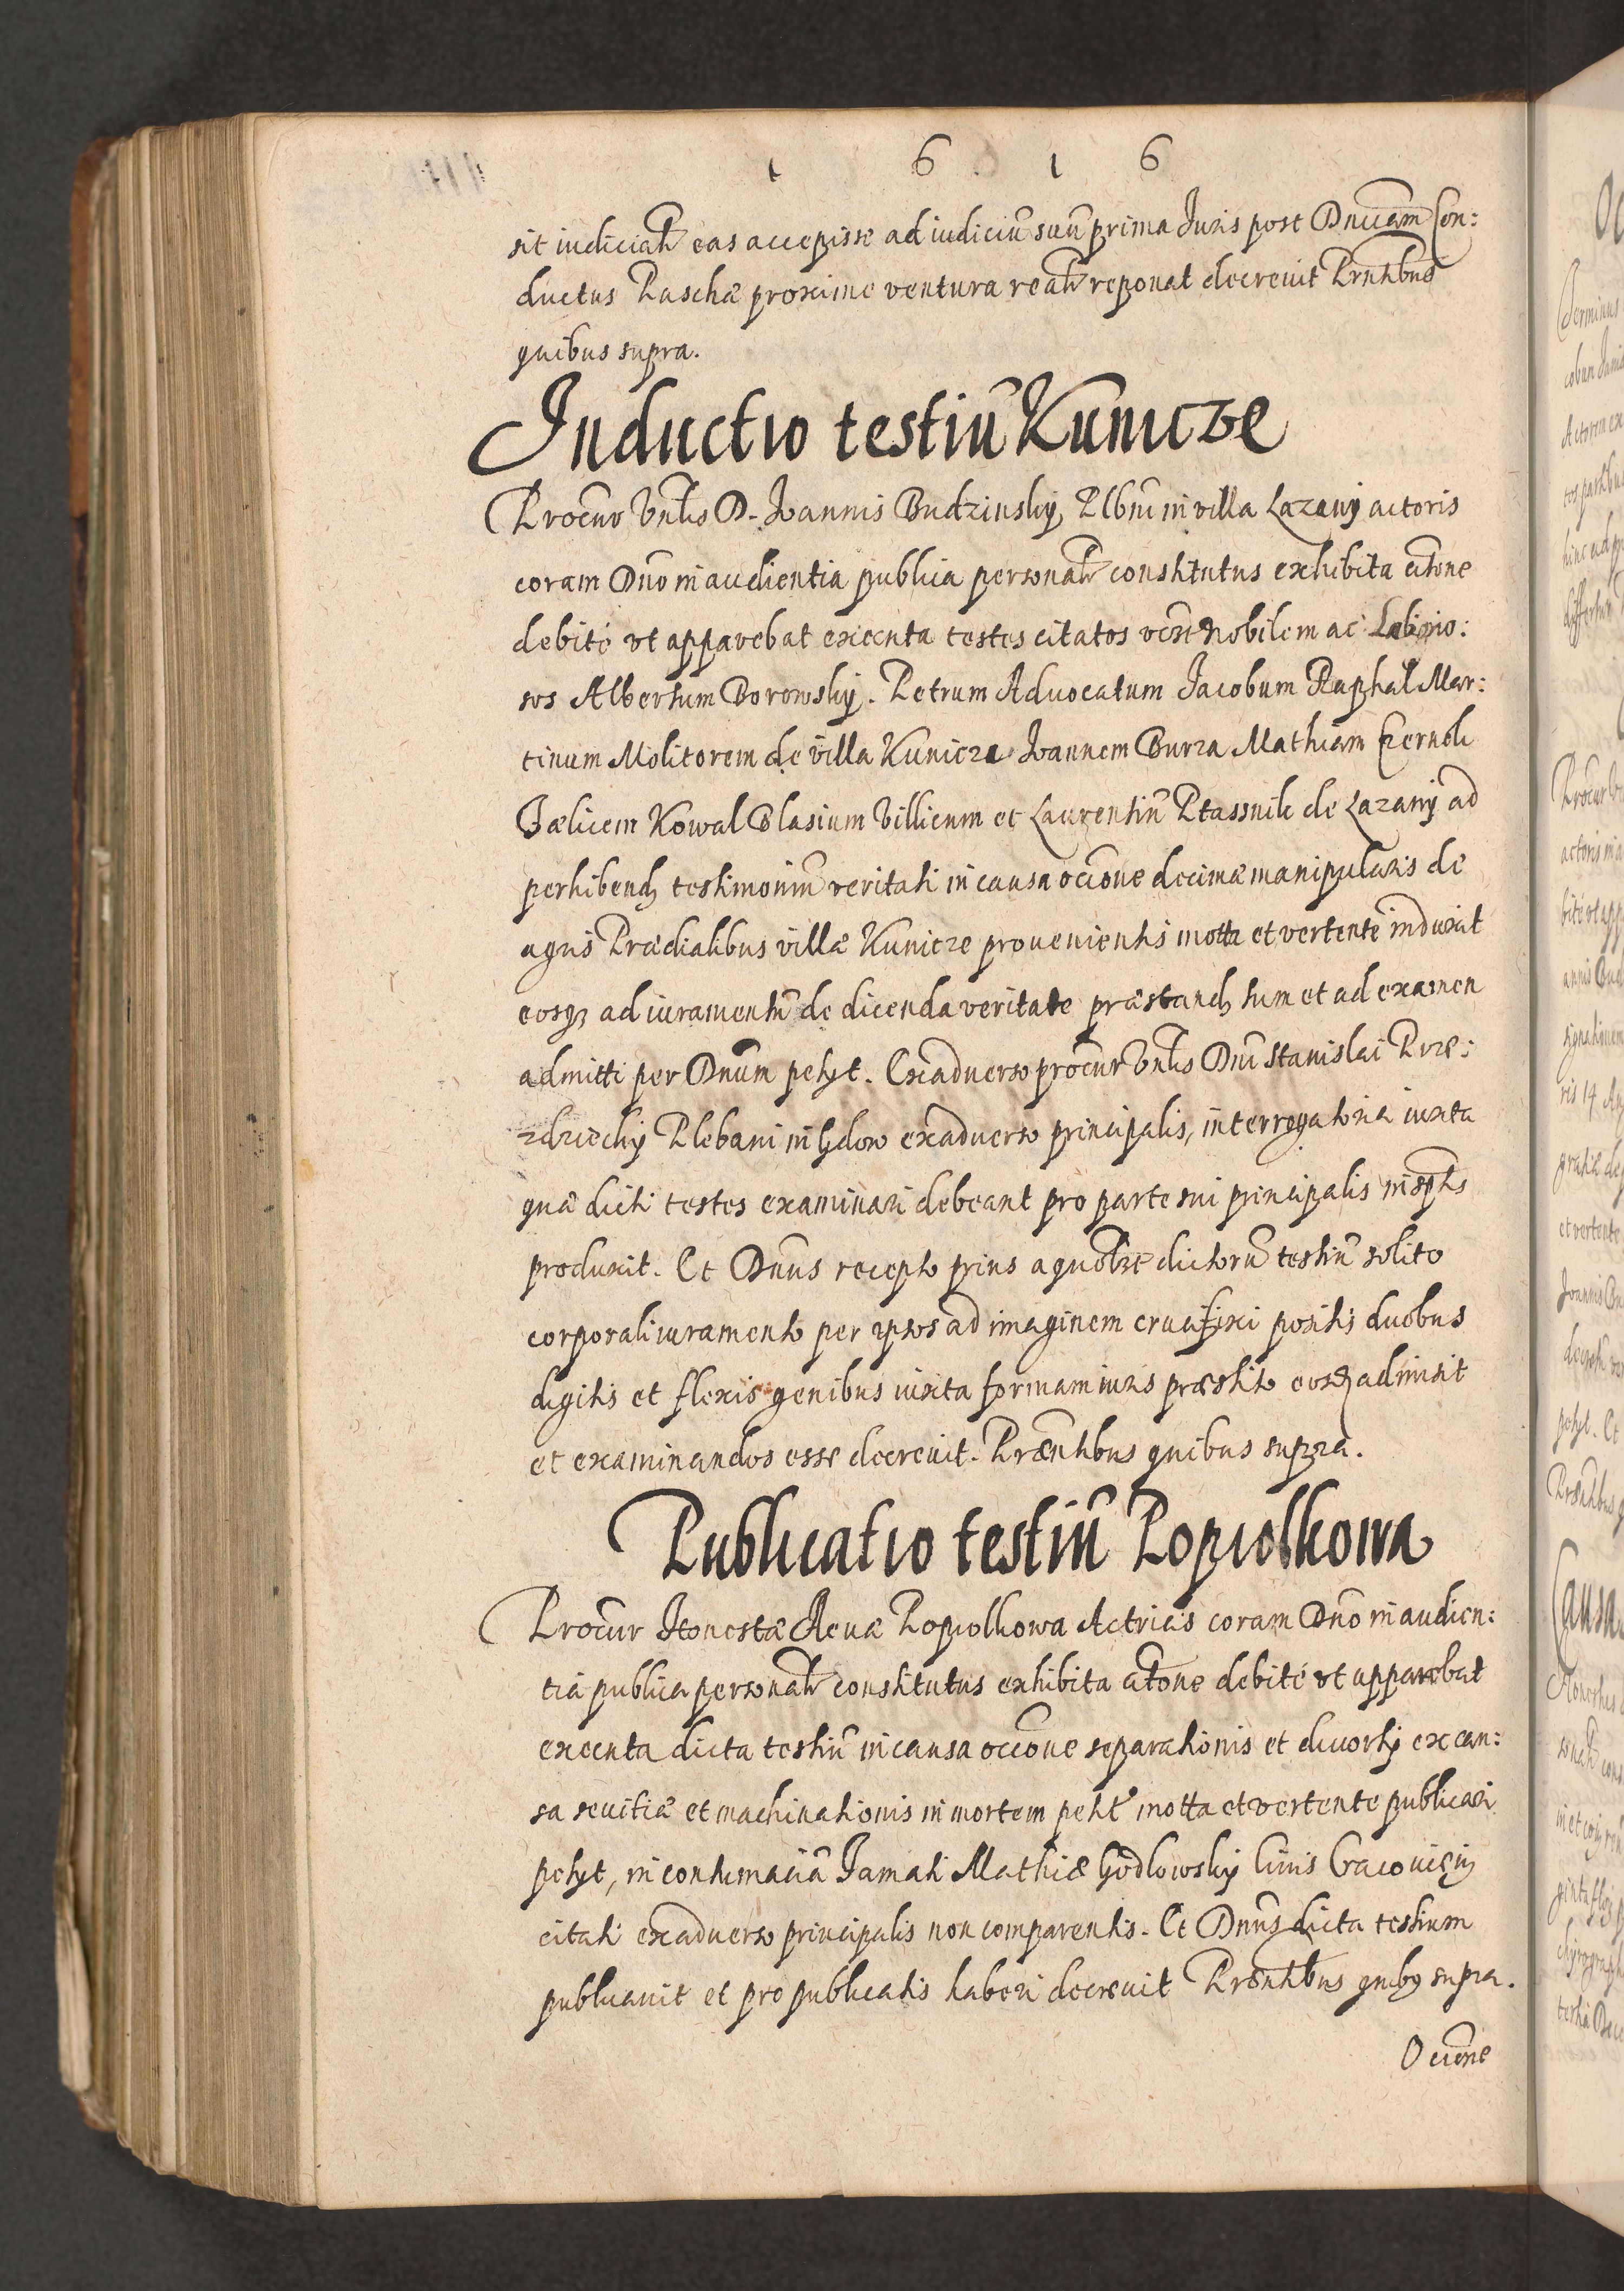 1 6 1 6
sit iudicialr eas accepisse ad iudiciū suū prima Juris post Dnicam Con:
ductus Paschæ proxime ventura realr reponat decreuit Prntibus
quibus supra.
Inductio testiū Kunicze
Procur Vnlis D. Joannis Budzinskij Plbni in villa Lazany actoris
coram Dno in audientia publica personalr constitutus exhibita citone
debite vt apparebat executa testes citatos vert Nobilem ac Laborio:
sos Albertum Borowskij. Petrum Aduocatum Jacobum Raphal Mar:
tinum Molitorem de villa Kunicze Joannem Burza Mathiam Czernek
Fælicem Kowal Blasium Villicum et Laurentiū Ptassnik de Lazany ad
perhibend testimoniū veritati in causa occone decimæ manipularis de
agris Prædialibus villæ Kunicze prouenientis motta et vertente induxit
eosq ad iuramentū de dicenda veritate præstand tum et ad examen
admitti per Dnum petyt. Exaduerso procur Vnlis Dni Stanislai Prze:
zdzieckij Plebani in Gdow exaduerso principalis, interrogatoria iuxta
quæ dicti testes examinari debeant pro parte sui principalis in scptis
produxit. Et Dnus recepto prius a quolibet dictorū testiū solito
corporali iuramento per ipsos ad imaginem crucifixi positis duobus
digitis et flexis genibus iuxta formam iuris præstito eosd admisit
et examinandos esse decreuit. Præntibus quibus supra.
Publicatio testiū Popiolkowa
Procur Honestæ Aeuæ Popiolkowa Actricis coram Dno in audien:
tia publica personalr constitutus exhibita citone debite vt apparebat
executa dicta testiū in causa occone separationis et diuortij ex cau:
sa seuitiæ et machinationis in mortem petit motta et vertente publicari
petyt, in contumaciā Famati Mathiæ Godlowskij Ciuis Cracouien
citati exaduerso principalis non comparentis. Et Dnus dicta testium
publicauit et pro publicatis haberi decreuit Præntibus quibq supra.
Occone